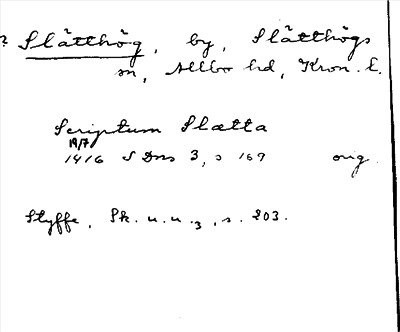 ? Slätthög, by, Slätthögs
sn, Allbo hd, Kron. l.
Scriptum Slætta
19/7
1416 SDns 3, s 169 orig.
Styffe, Sk. u. u. 3, s. 203.